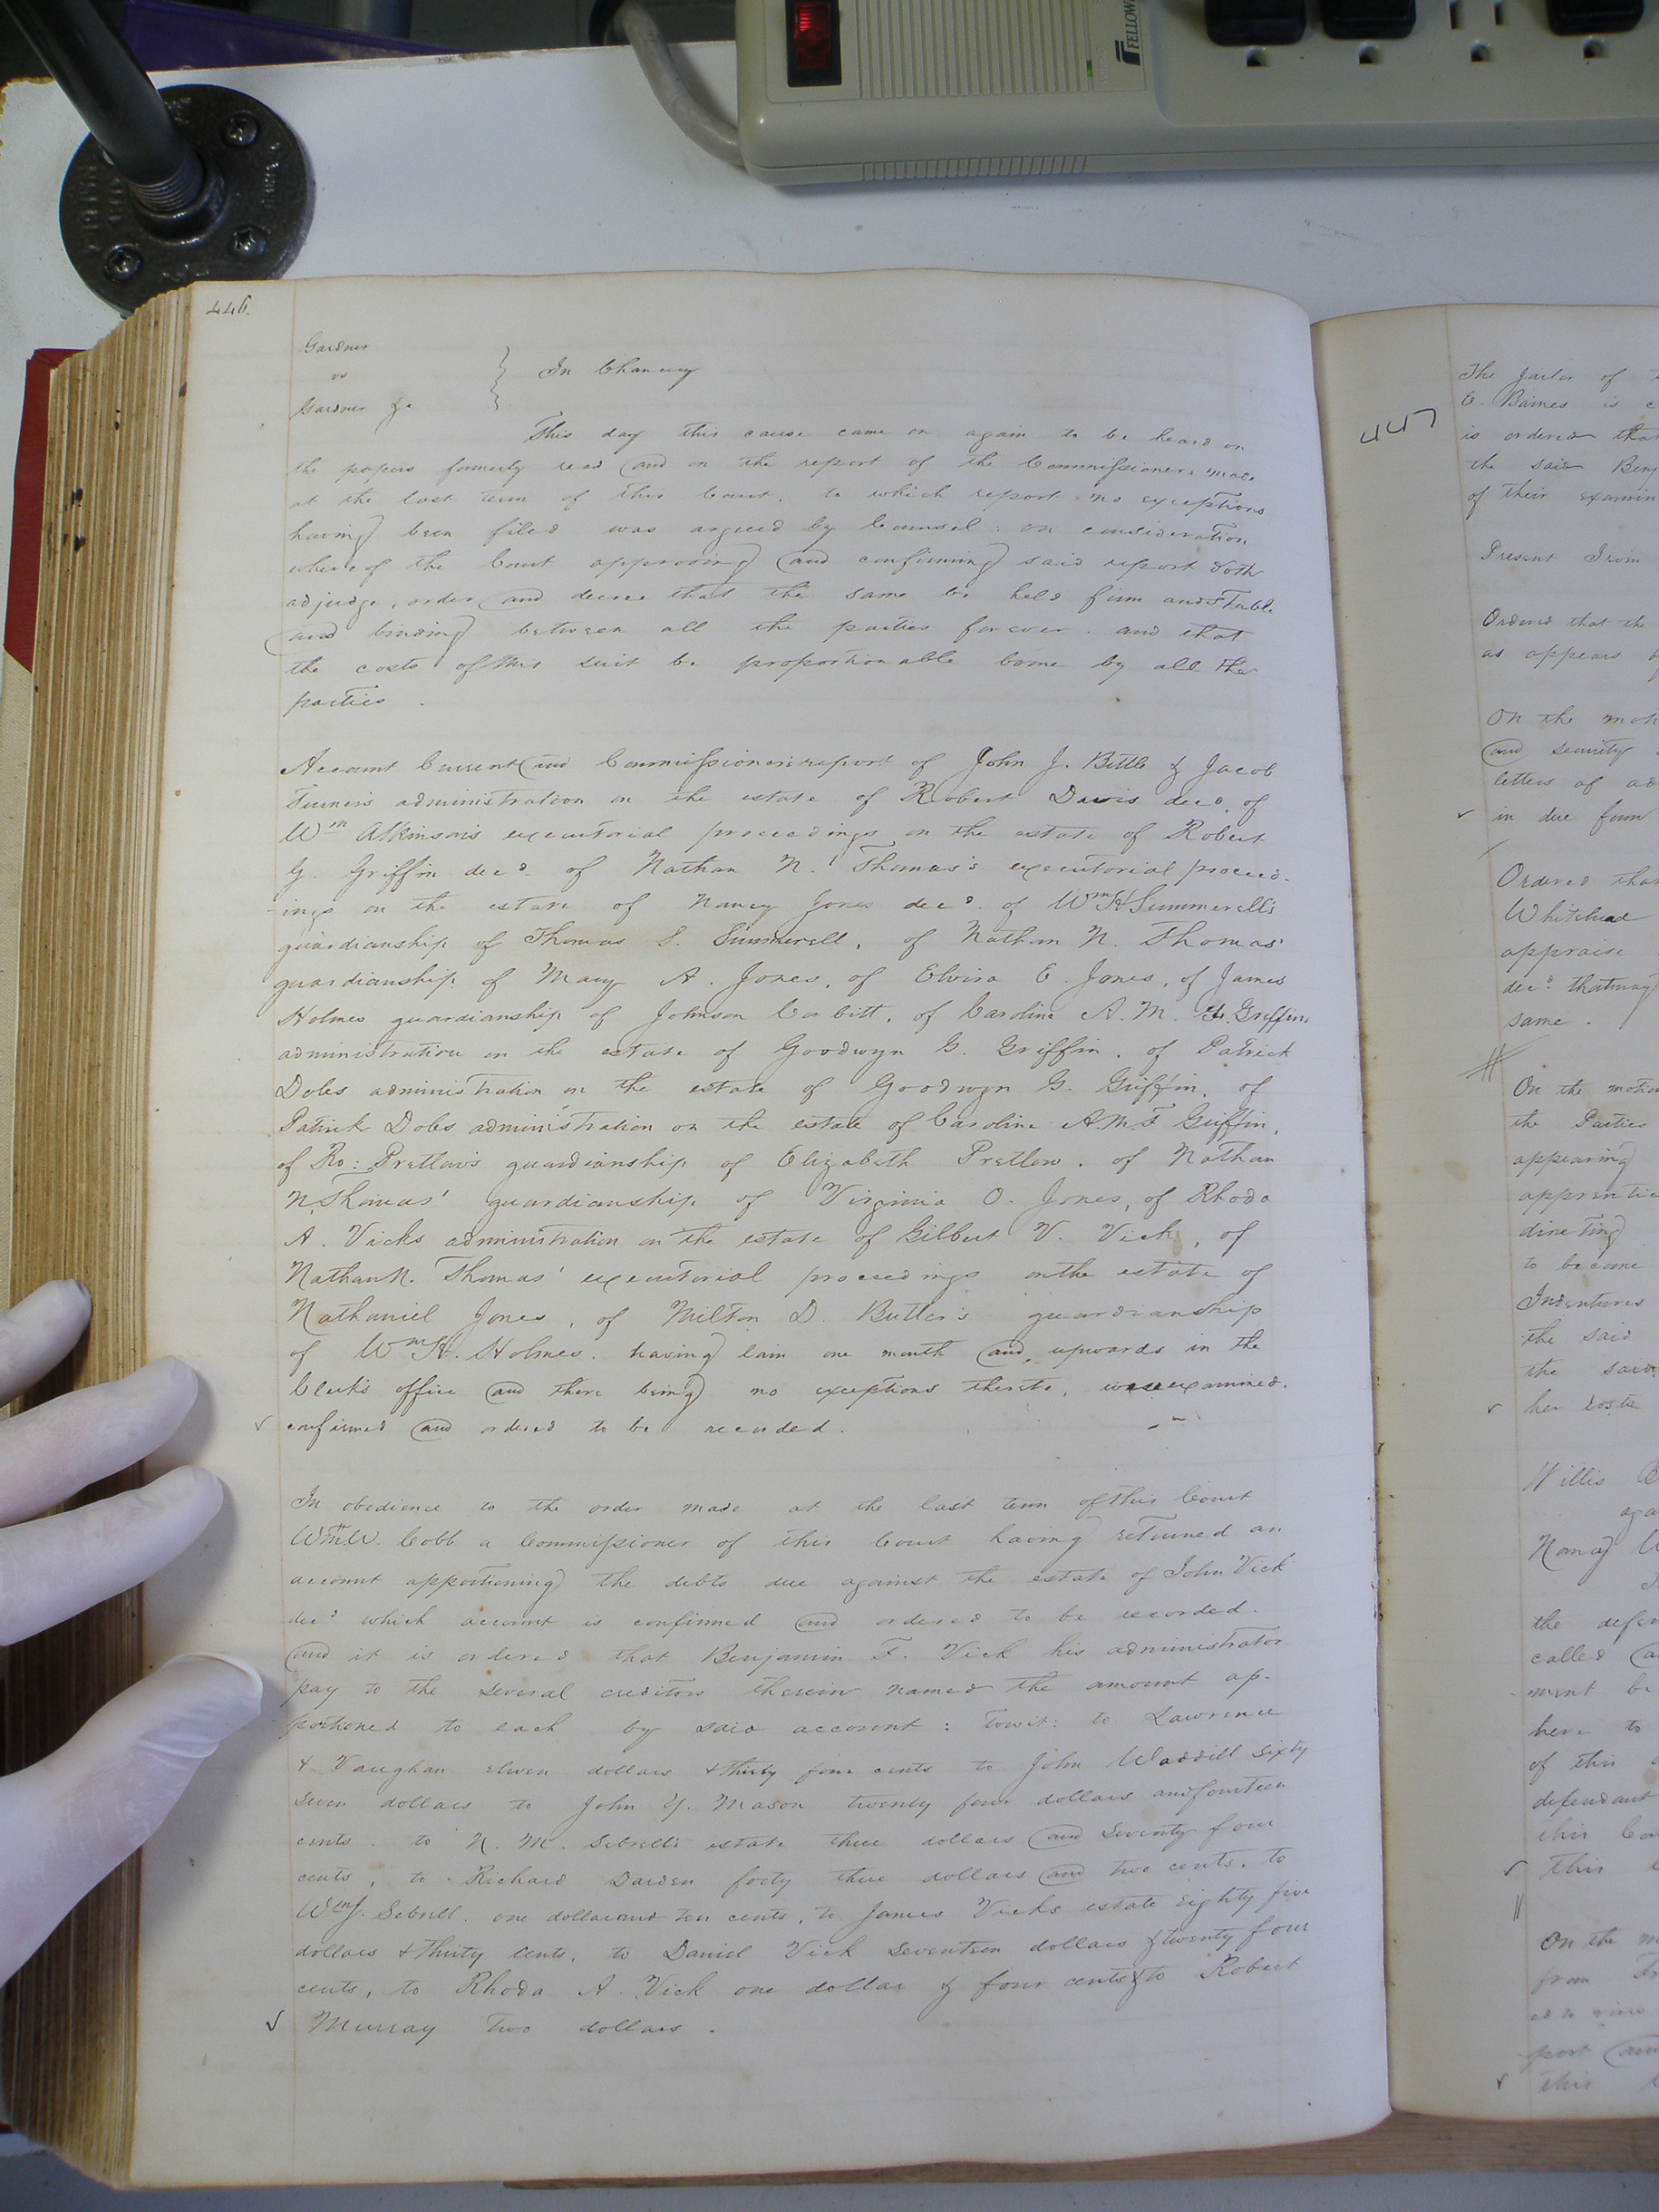 FELLOW
446.
Gardner
vs
Gardner &c
In Chancery
This day this cause came on again to be heard on
the papers formerly read and on the report of the Commissioners made
at the last term of this Court, to which report no exceptions
having been filed was argued by Counsel: on consideration
whereof the Court approving and confirming said report doth
adjudge, order and decree that the same be held firm and stable
and binding between all the parties forever. and that
the costs of this suit be proportionable borne by all the
parties.
Account Current and Commissioners report of John J. Bittle & Jacob
Turners administration on the estate of Robert Davis decd. of
Wm Atkinson's executorial proceedings on the estate of Robert
G. Griffin decd. of Nathan N. Thomas's executorial proceed-
-ings on the estate of Nancy Jones decd. of Wm H Summerell's
guardianship of Thomas S. Summerell, of Nathan N. Thomas'
guardianship of Mary A. Jones, of Elvira E. Jones, of James
Holmes guardianship of Johnson Corbitt, of Caroline A. M. F. Griffins
administration on the estate of Goodwyn G. Griffin, of Patrick
Doles administration on the estate of Goodwyn G. Griffin, of
Patrick Doles administration on the estate of Caroline A.M.F Griffin,
of Ro: Pretlow's guardianship of Elizabeth Pretlow, of Nathan
N. Thomas' guardianship of Virginia O. Jones, of Rhoda
A. Vicks administration on the estate of Gilbert V. Vick, of
Nathan N. Thomas' executorial proceedings on the estate of
Nathaniel Jones, of Milton D. Butler's guardianship
of Wm H. Holmes. having lain one month and upwards in the
Clerk's office and there being no exceptions thereto, were examined.
confirmed and ordered to be recorded.
In obedience to the order made at the last term of this Court
Wm W. Cobb a Commissioner of this Court having returned an
account apportioning the debts due against the estate of John Vick
decd which account is confirmed and ordered to be recorded.
and it is ordered that Benjamin F. Vick his administrator
pay to the several creditors therein named the amount ap-
portioned to each by said account: Towit: to Lawrence
& Vaughan eleven dollars & thirty four cents to John Waddill sixty
seven dollars to John Y. Mason twenty four dollars and fourteen
cents. to N. M. Sebrell's estate three dollars and seventy four
cents, to Richard Darden forty three dollars and two cents. to
Wm J. Sebrell. one dollar and ten cents, to James Vicks estate eighty five
dollars & thirty cents, to Daniel Vick seventeen dollars & twenty four
cents, to Rhoda A. Vick one dollar & four cents & to Robert
Murray two dollars.
447
The Jailor of
C. Barnes is
is ordered that
the said Benj
of their examin
Present Irvin
Ordered that the
as appears
On the mot
and security
letters of ad
in due form
Ordered that
Whitehead
appraise
decd. that may
same.
On the motio
the Parties
appearing
apprentic
directing
to become
Indentures
the said
the said
her costs
Willis B
aga
Nancy W
the defen
called
ment be
here to
of this
defendant
this Cou
this
On the m
from
ed to give
port and
this